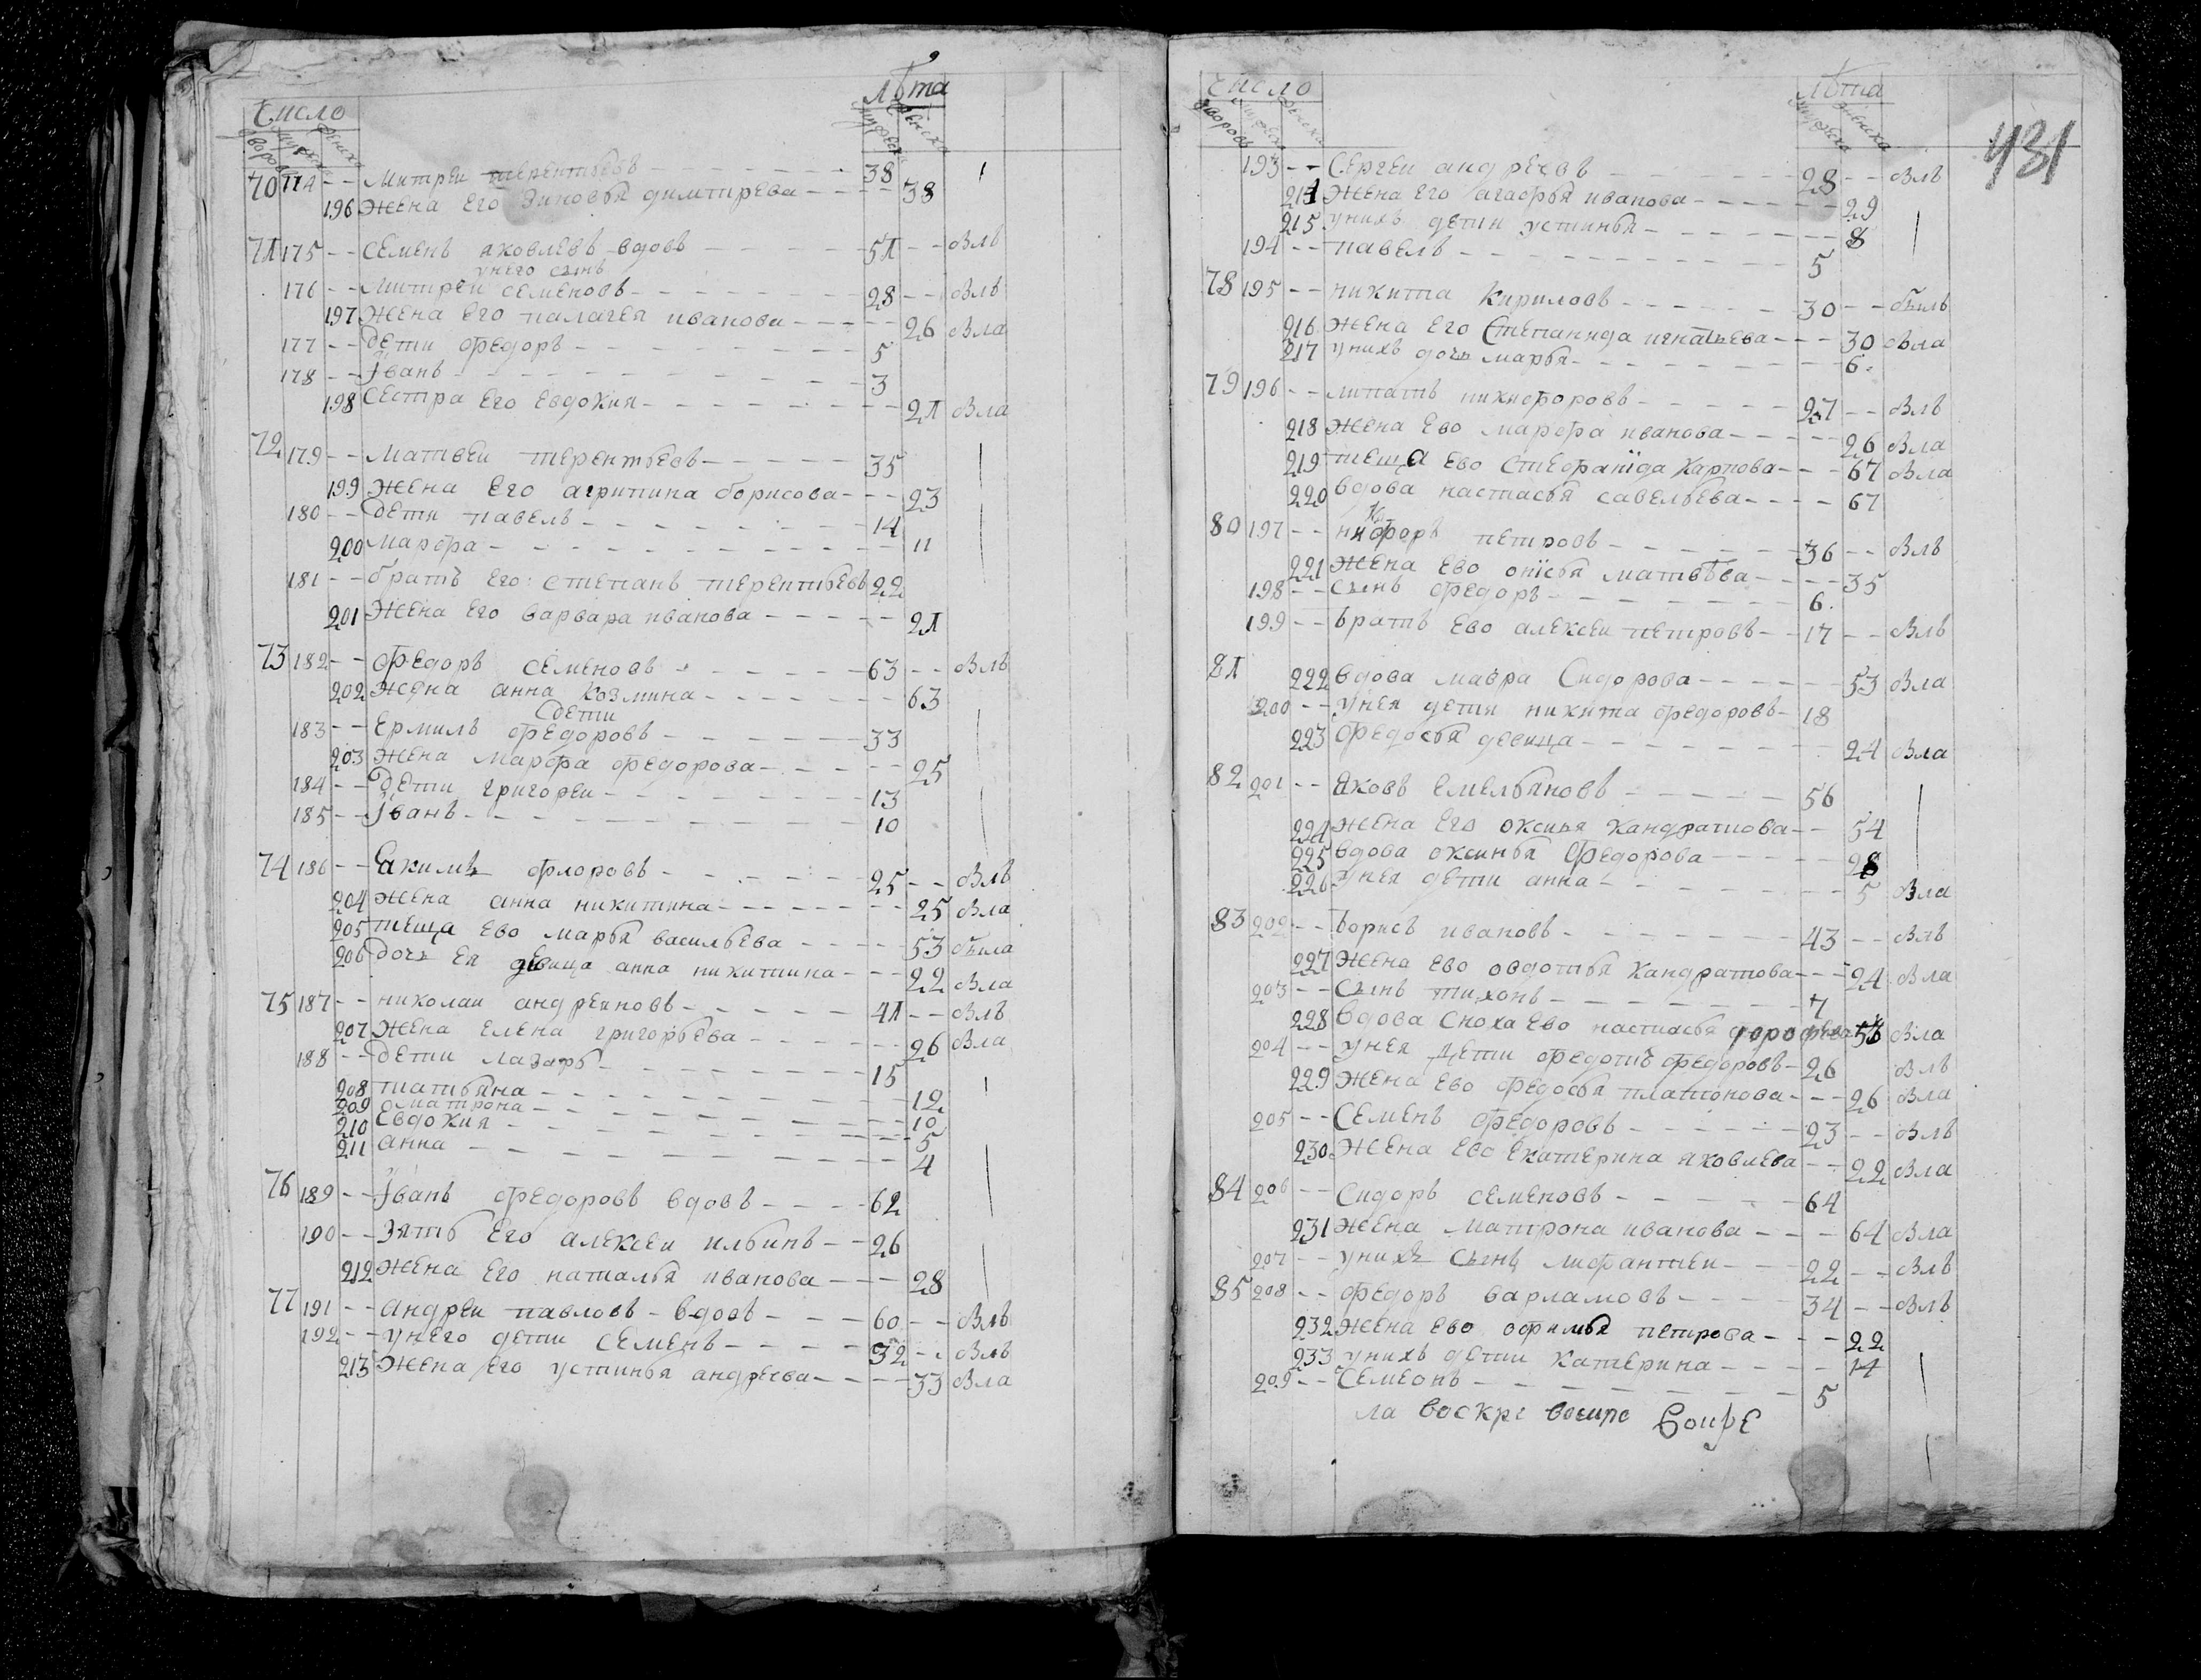 Число
Лѣта
дворовъ мужеска женска
мужеска женска
70 174 -- Митреи терентьевъ 38
196 Жена Его Зиновья димитрева 38
71 175 -- Семенъ яковлевъ вдовъ 51 -- былъ
у него сынъ
176 -- Митреи семеновъ 28 -- былъ
197 Жена Его палагея иванова 26 была
177 -- Дети федоръ 5
178 -- Iванъ 3
198 Сестра Его Евдокия 21 была
72 179 -- Матвеи терентьевъ 35
199 Жена Его агрипина борисова 23
180 -- Дети павелъ 14
200 марфа 11
181 -- братъ Его степанъ терентьевъ 22
201 Жена Его варвара иванова 21
73 182 -- федоръ семеновъ 63 -- былъ
202 Жена анна козмина 63
дети
183 -- Ермилъ федоровъ 33
203 Жена марфа федорова 25
184 -- Дети григореи 13
185 -- Iванъ 10
74 186 -- Екимъ флоровъ 25 -- былъ
204 Жена анна никитина 25 была
205 теща Ево марья васильева 53 была
206 дочь Ея девица анна никитина 22 была
75 187 -- николаи андреяновъ 41 -- былъ
207 Жена Елена григорьева 26 была
188 -- дети лазарь 15
208 татьяна 12
209 матрона 10
210 Евдокия 5
211 анна 4
76 189 -- Iванъ федоровъ вдовъ 62
190 -- Зять Его алексеи ильинъ 26
212 Жена Его наталья иванова 28
77 191 -- андреи павловъ вдовъ 60 -- былъ
192 -- унего дети семенъ 32 -- былъ
213 Жена Его устинья андреева 33 была
Число
Лѣта
431
дворовъ мужеска женска
мужеска женска
193 -- Сергеи андреевъ 28 -- былъ
214 Жена Его агафья иванова 29
215 унихъ дети устинья 8
194 -- павелъ 5
78 195 -- никита Кириловъ 30 -- былъ
216 Жена Его Степанида игнатьева 30 была
217 унихъ дочь марья 6
79 196 -- липатъ никифоровъ 27 -- былъ
218 Жена Ево марфа иванова 26 была
219 теща Ево Стефанiда Карпова 67 была
220 вдова настасья савельева 67
80 197 -- никифоръ петровъ 36 -- былъ
221 Жена Ево онiсья матвѣва 35
198 -- сынъ федоръ 6
199 -- братъ Ево алексеи петровъ 17 -- былъ
81 222 вдова мавра Сидорова 53 была
200 -- унея дети никита федоровъ 18
223 федосья девица 24 была
82 201 -- Яковъ Емельяновъ 56
224 Жена Его оксинья кандратова 54
225 вдова оксинья Федорова 28
226 унея дети анна 5 была
83 202 -- борисъ ивановъ 43 -- былъ
227 Жена Ево овдотья кандратова 24 была
203 -- Сынъ тихонъ 7
228 вдова Сноха Ево настасья дорофеева 56 была
204 -- унея дети федотъ федоровъ 26 былъ
229 Жена Ево федосья платонова 26 была
205 -- Семенъ федоровъ 23 -- былъ
230 Жена Ево Екатерина яковлева 22 была
84 206 -- Сидоръ семеновъ 64
231 Жена матрона иванова 64 была
207 -- унихъ Сынъ лифантеи 22 -- былъ
85 208 -- федоръ варламовъ 34 -- былъ
232 Жена Ево офимья петрова 22
233 унихъ дети катерина 14
209 -- Семеонъ 5